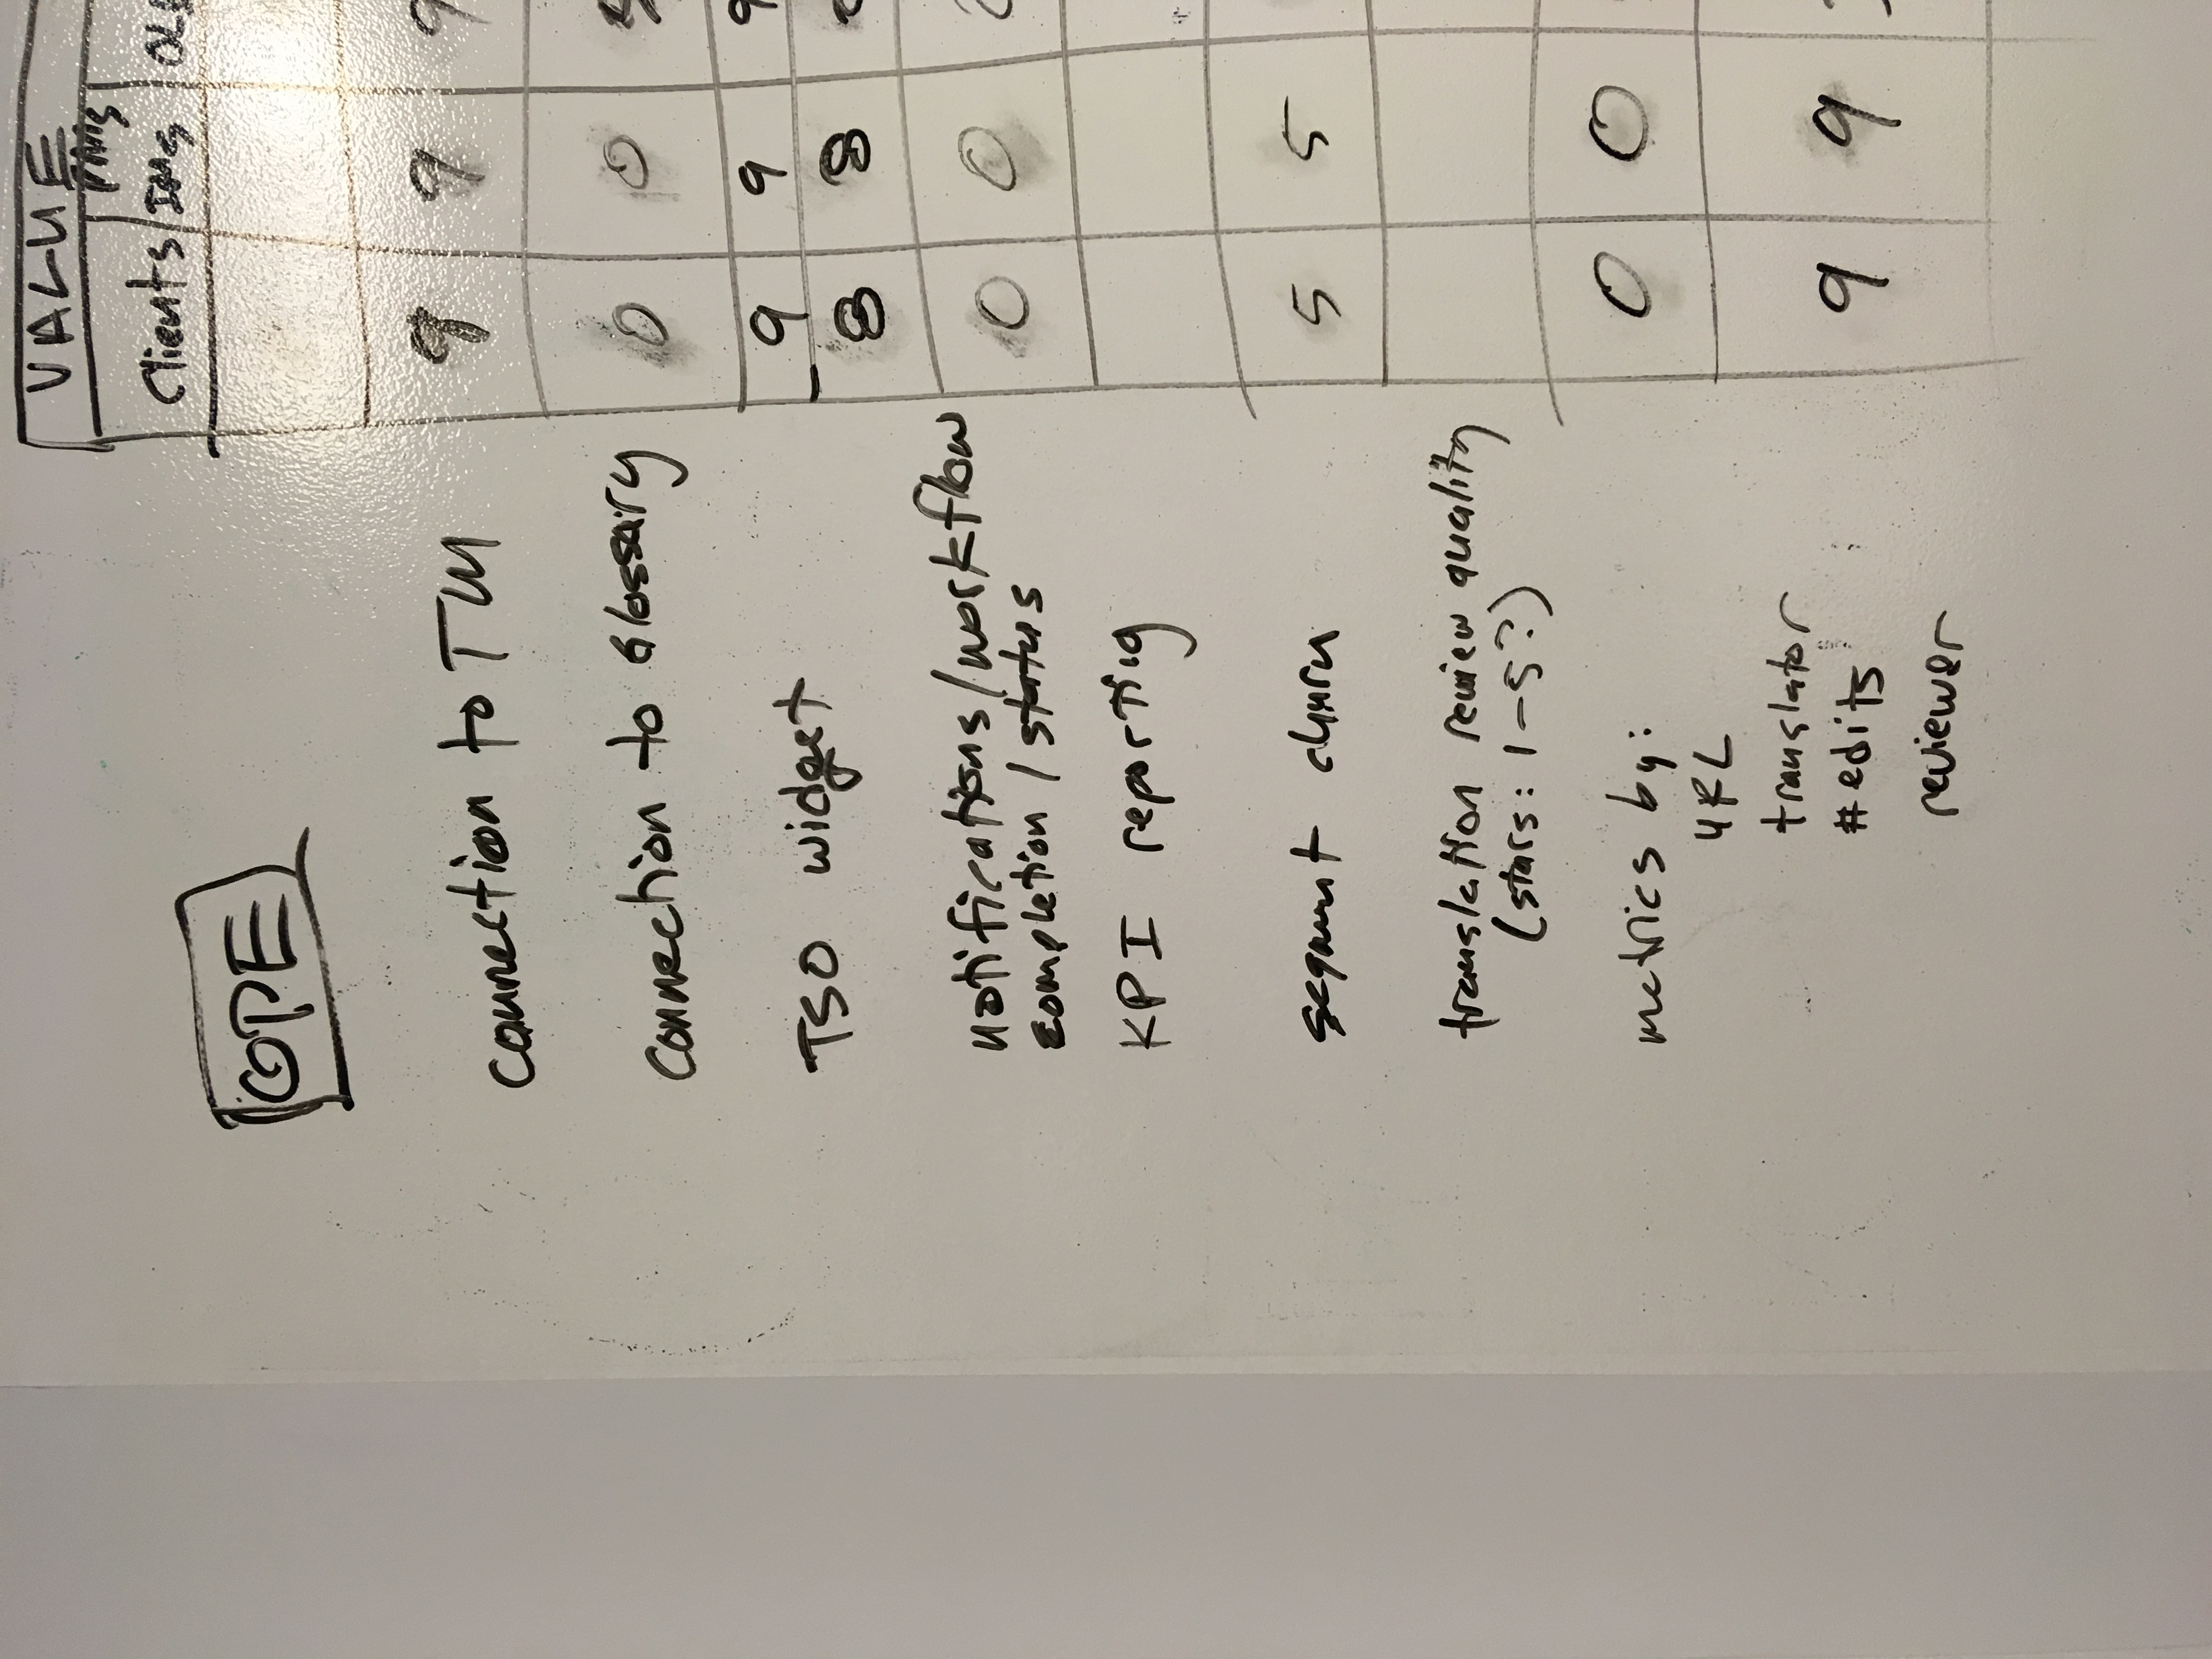 VALUE
Clients PMs
IMs
GPE
connection to TM 9 9
connection to Glossary 0 0
TSO widget 9 9
8 8
notifications/workflow 0 0
completion / status
KPI reporting
segment churn 5 5
translation review quality
(stars: 1-5?)
metrics by: 0 0
URL
translator
#edits 9 9
reviewer